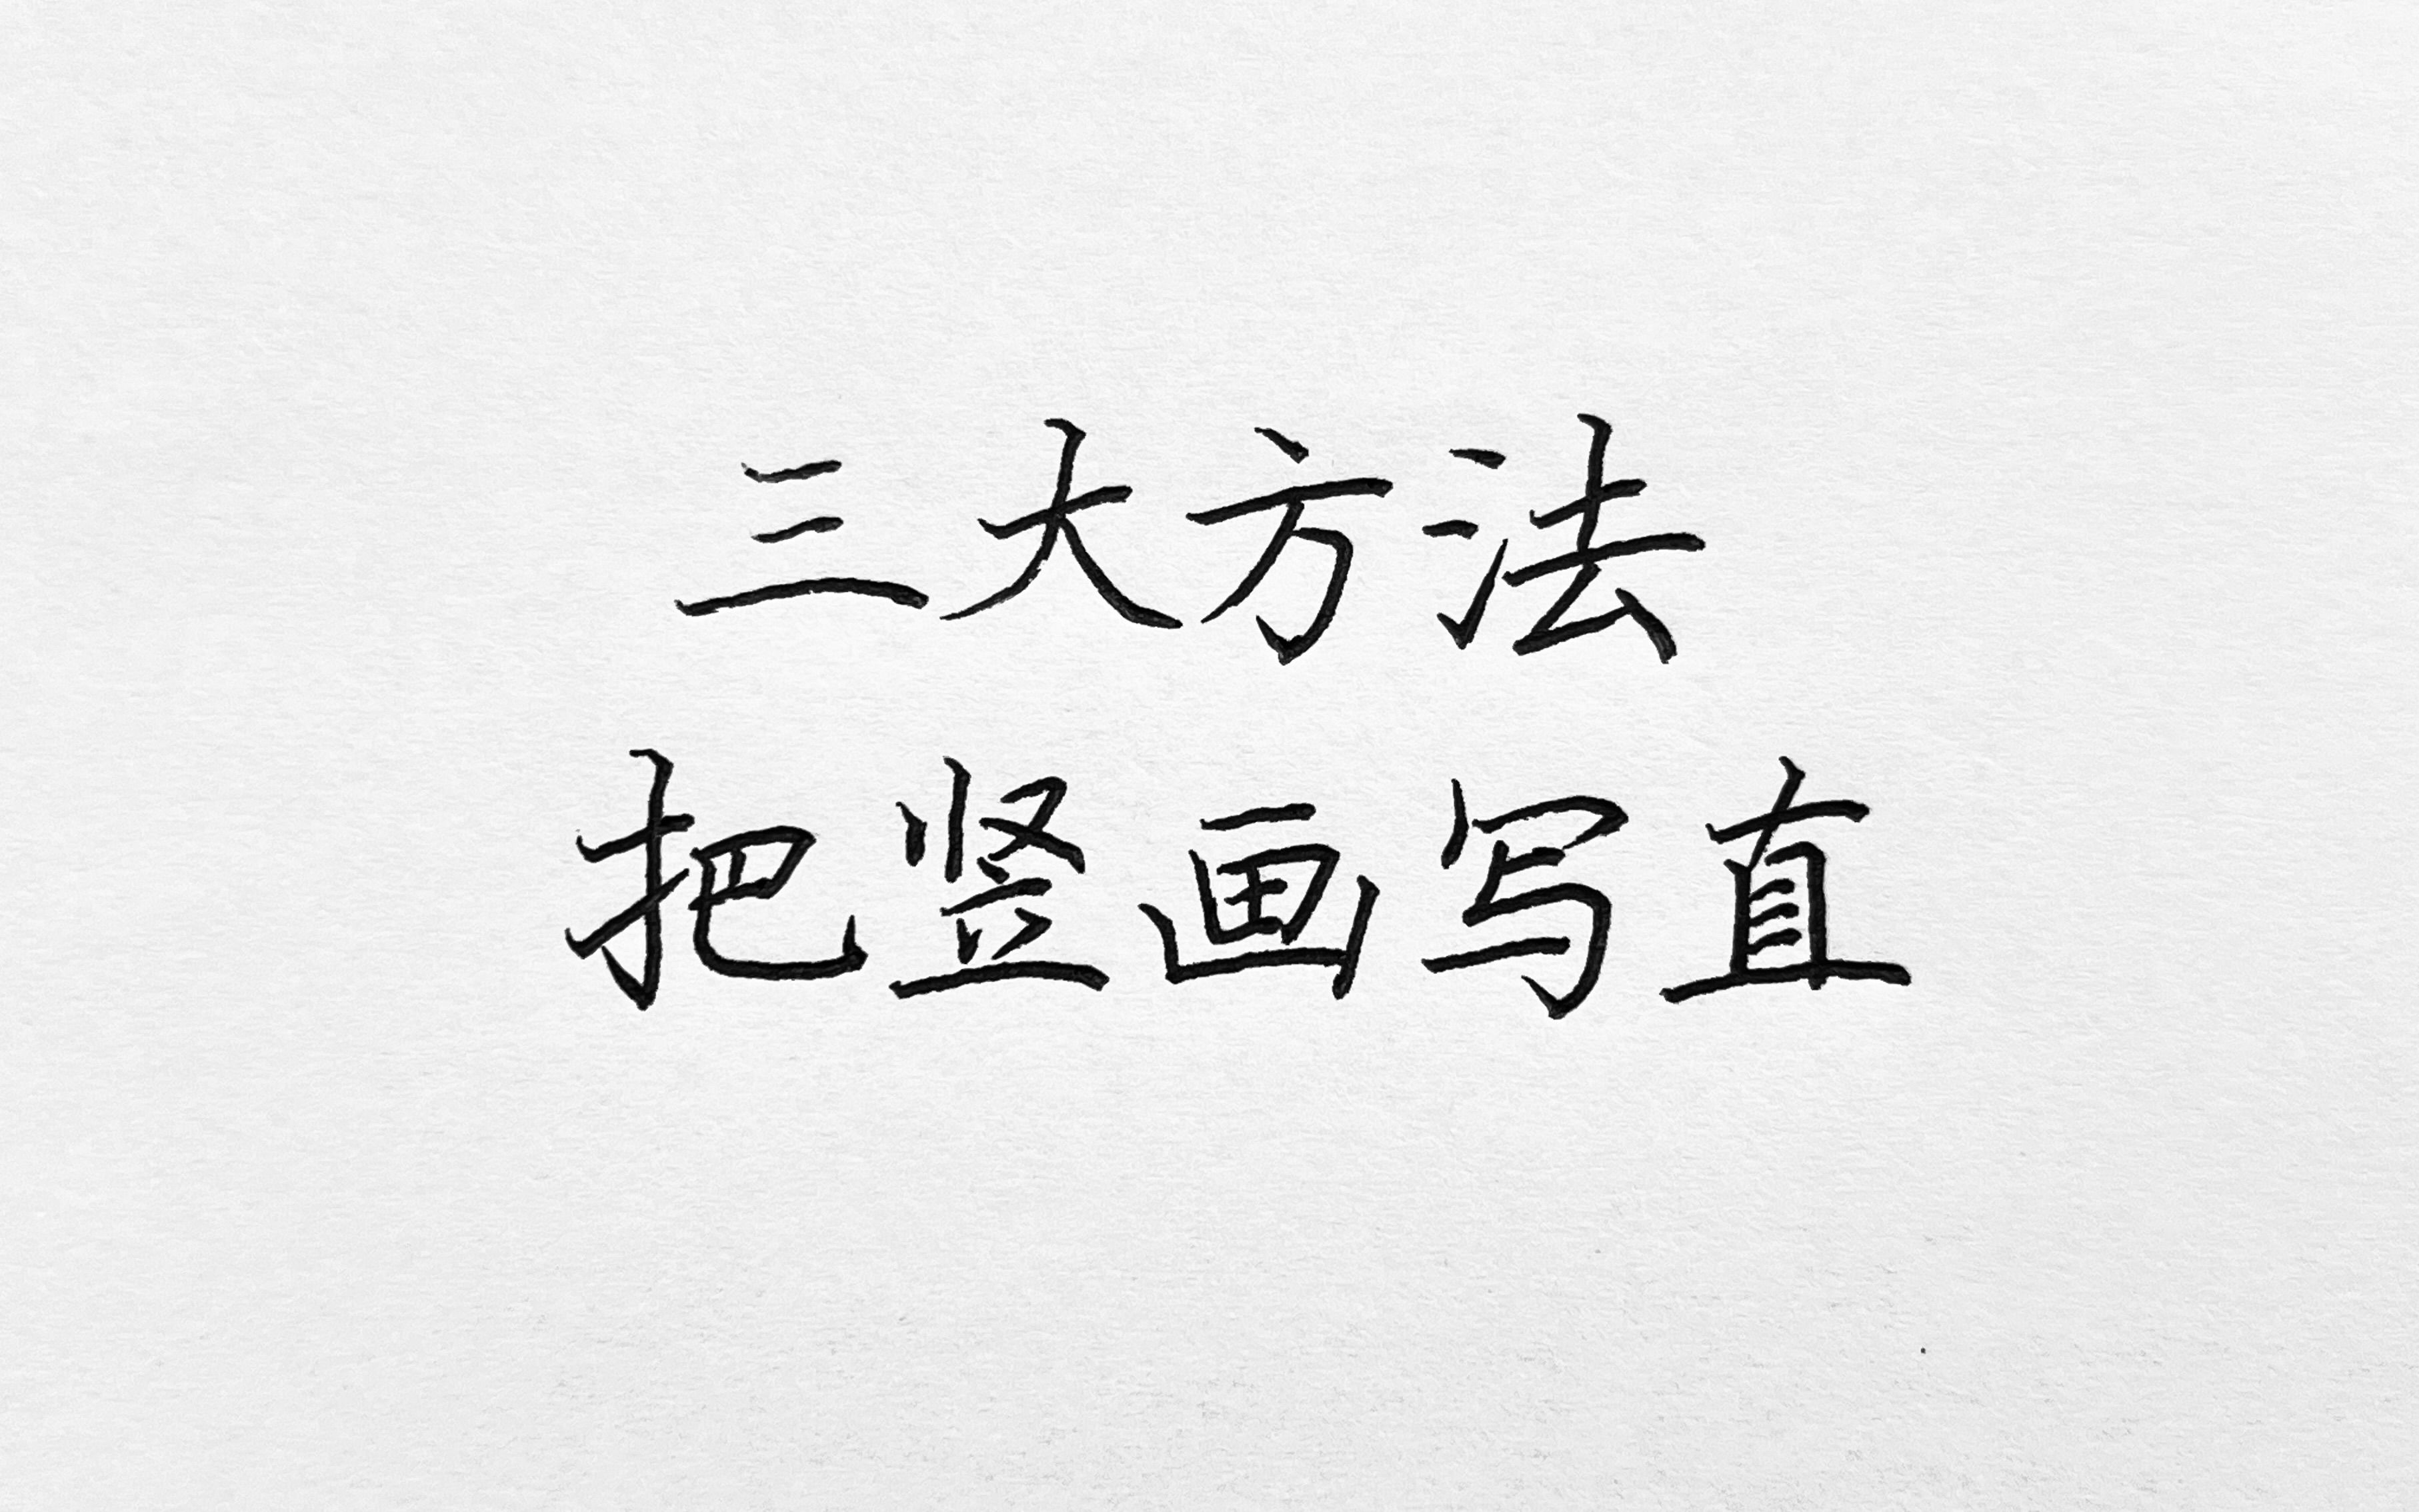 三大方法
把竖画写直